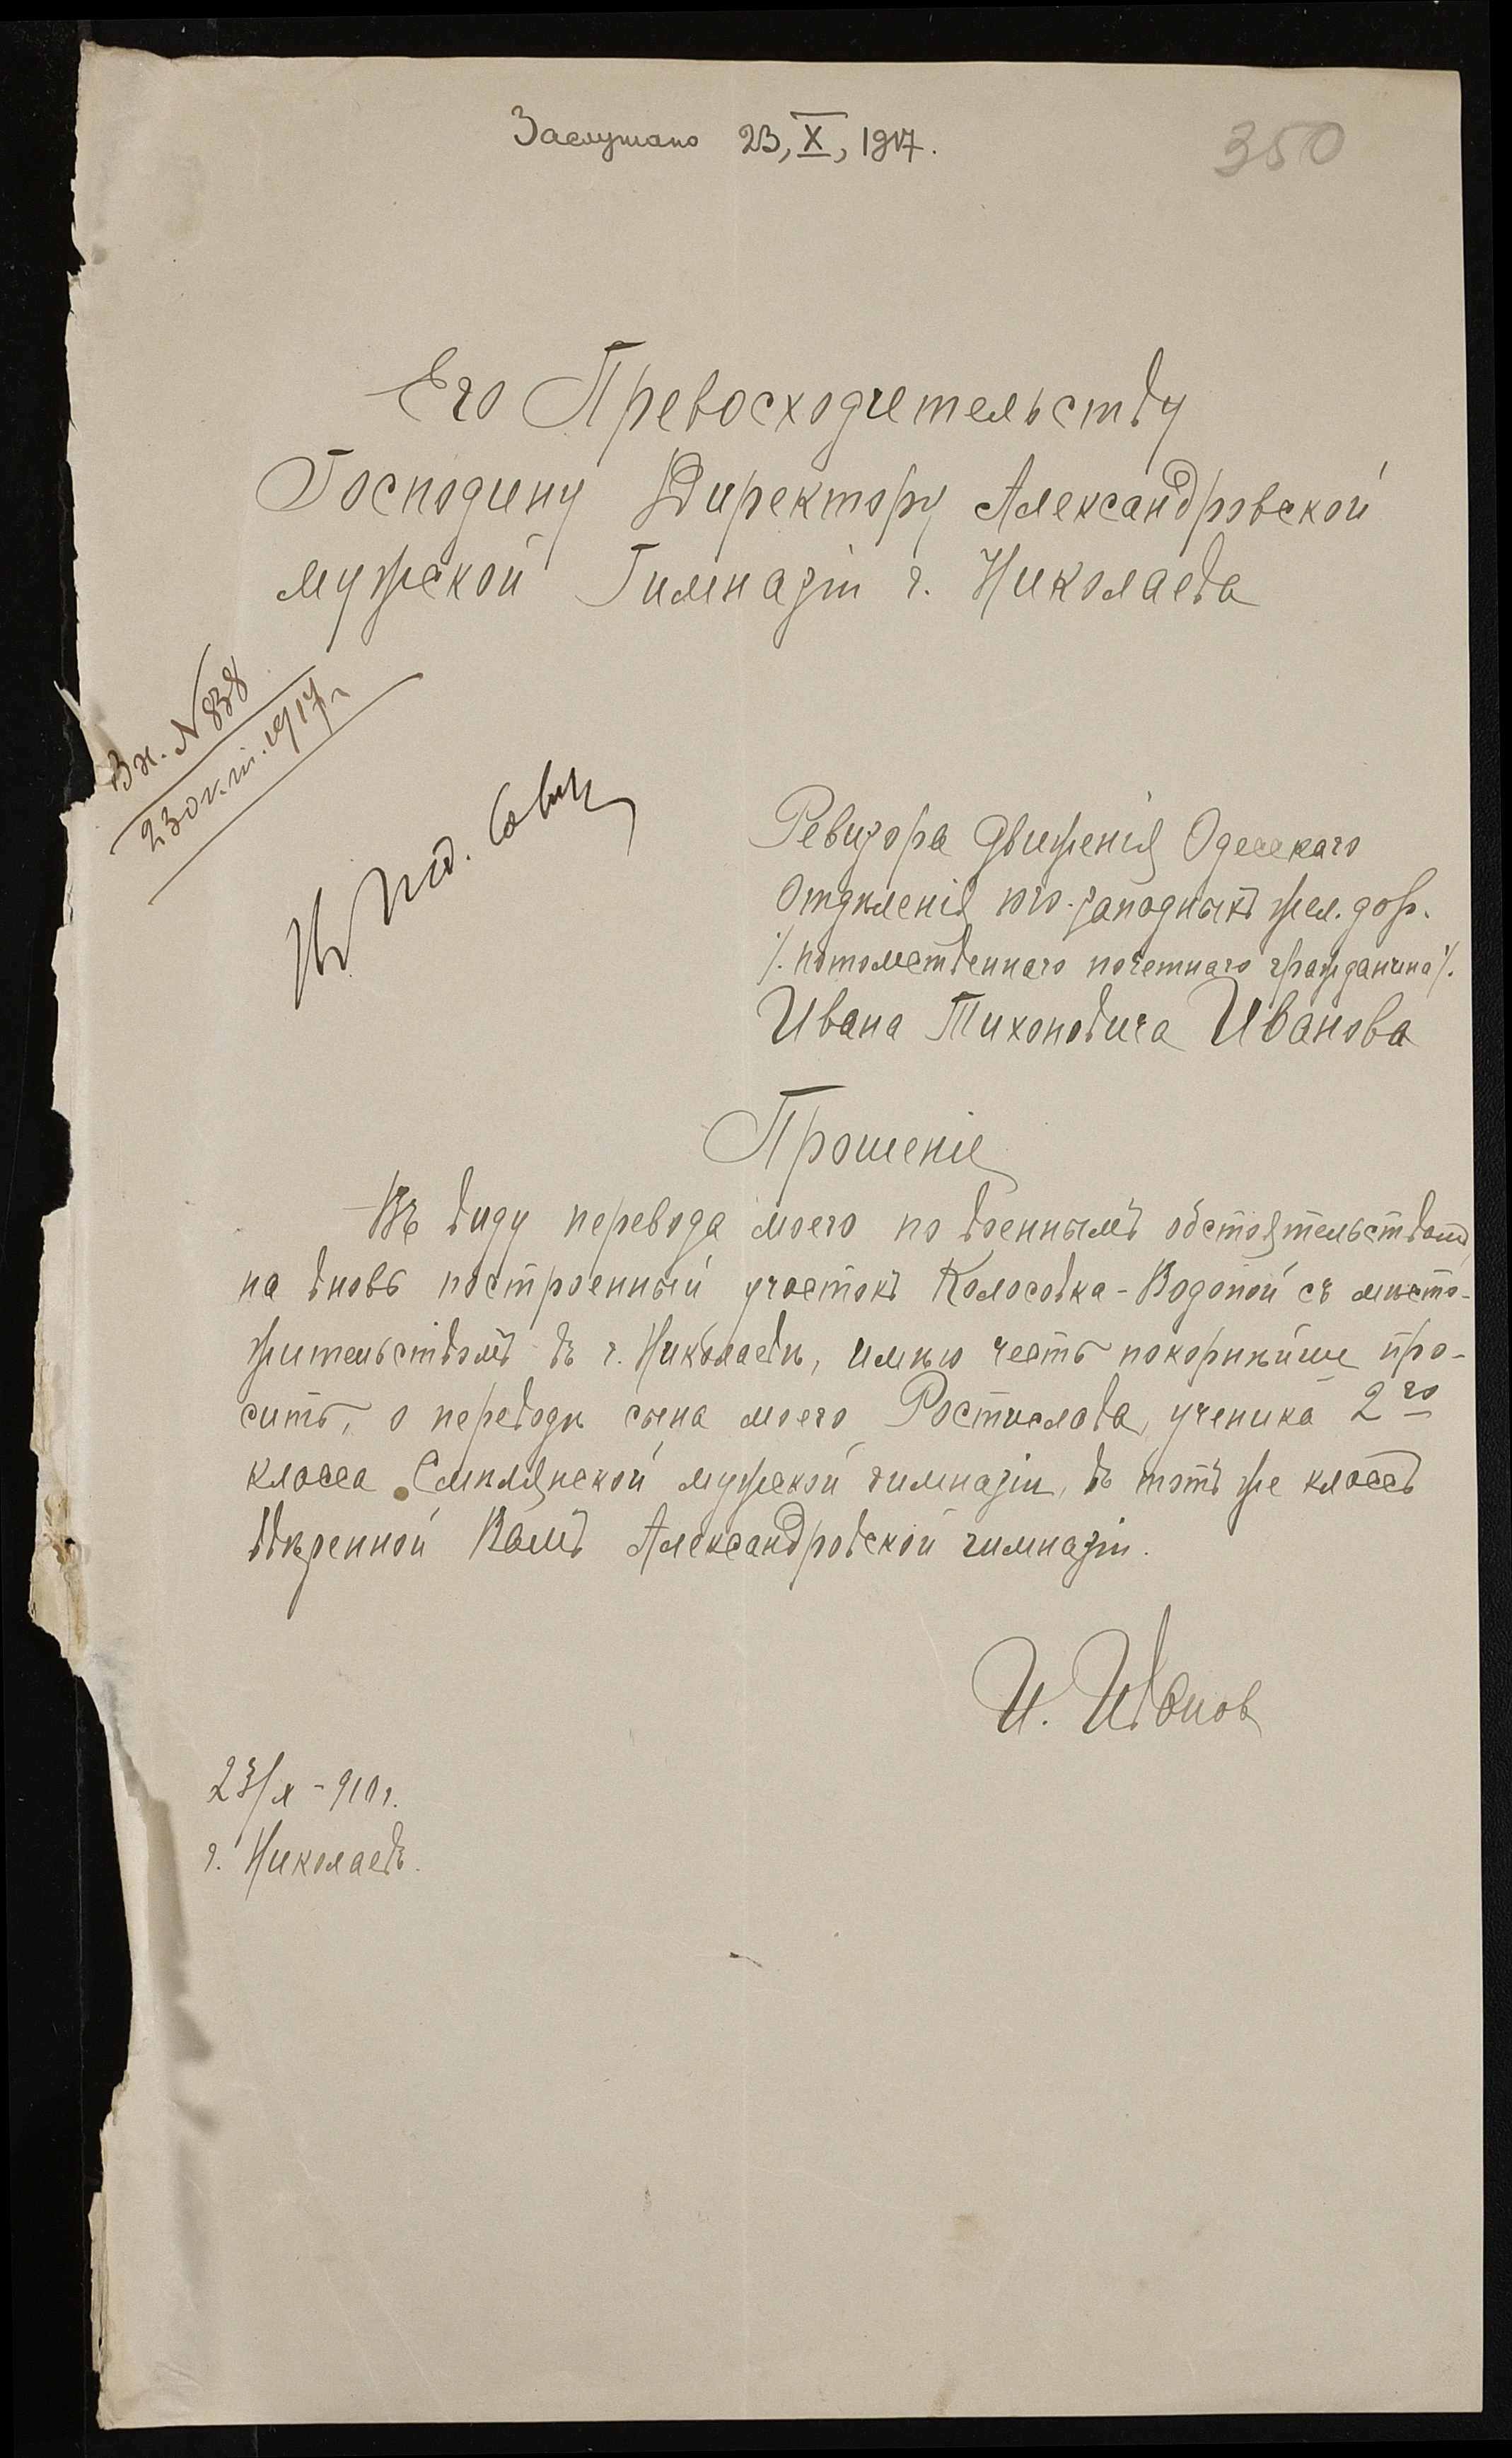 Заслушано 23, X, 1917.
350
Его Превосходительству
Господину Директору Александровской
мужской Гимназіи г. Николаева
Вх. N 838
23 окт. 1917 г.
Въ Пед. Совѣт
Ревизора Движенія Одесскаго
Отдѣленія Юго-западныхъ жел. дор.
/. потомственнаго почетнаго гражданина /.
Ивана Тихоновича Иванова
Прошеніе
Въ виду перевода моего по военнымъ обстоятельствамъ
на вновь построенный участокъ Колосовка-Водопой съ мѣсто-
жительствомъ въ г. Николаевѣ, имѣю честь покорнѣйше про-
сить, о переводѣ сына моего Ростислава, ученика 2го
класса Смѣлянской мужской гимназіи, въ тотъ же классъ
ввѣренной Вамъ Александровской гимназіи.
И. Иванов
23/X - 917 г.
г. Николаевъ.